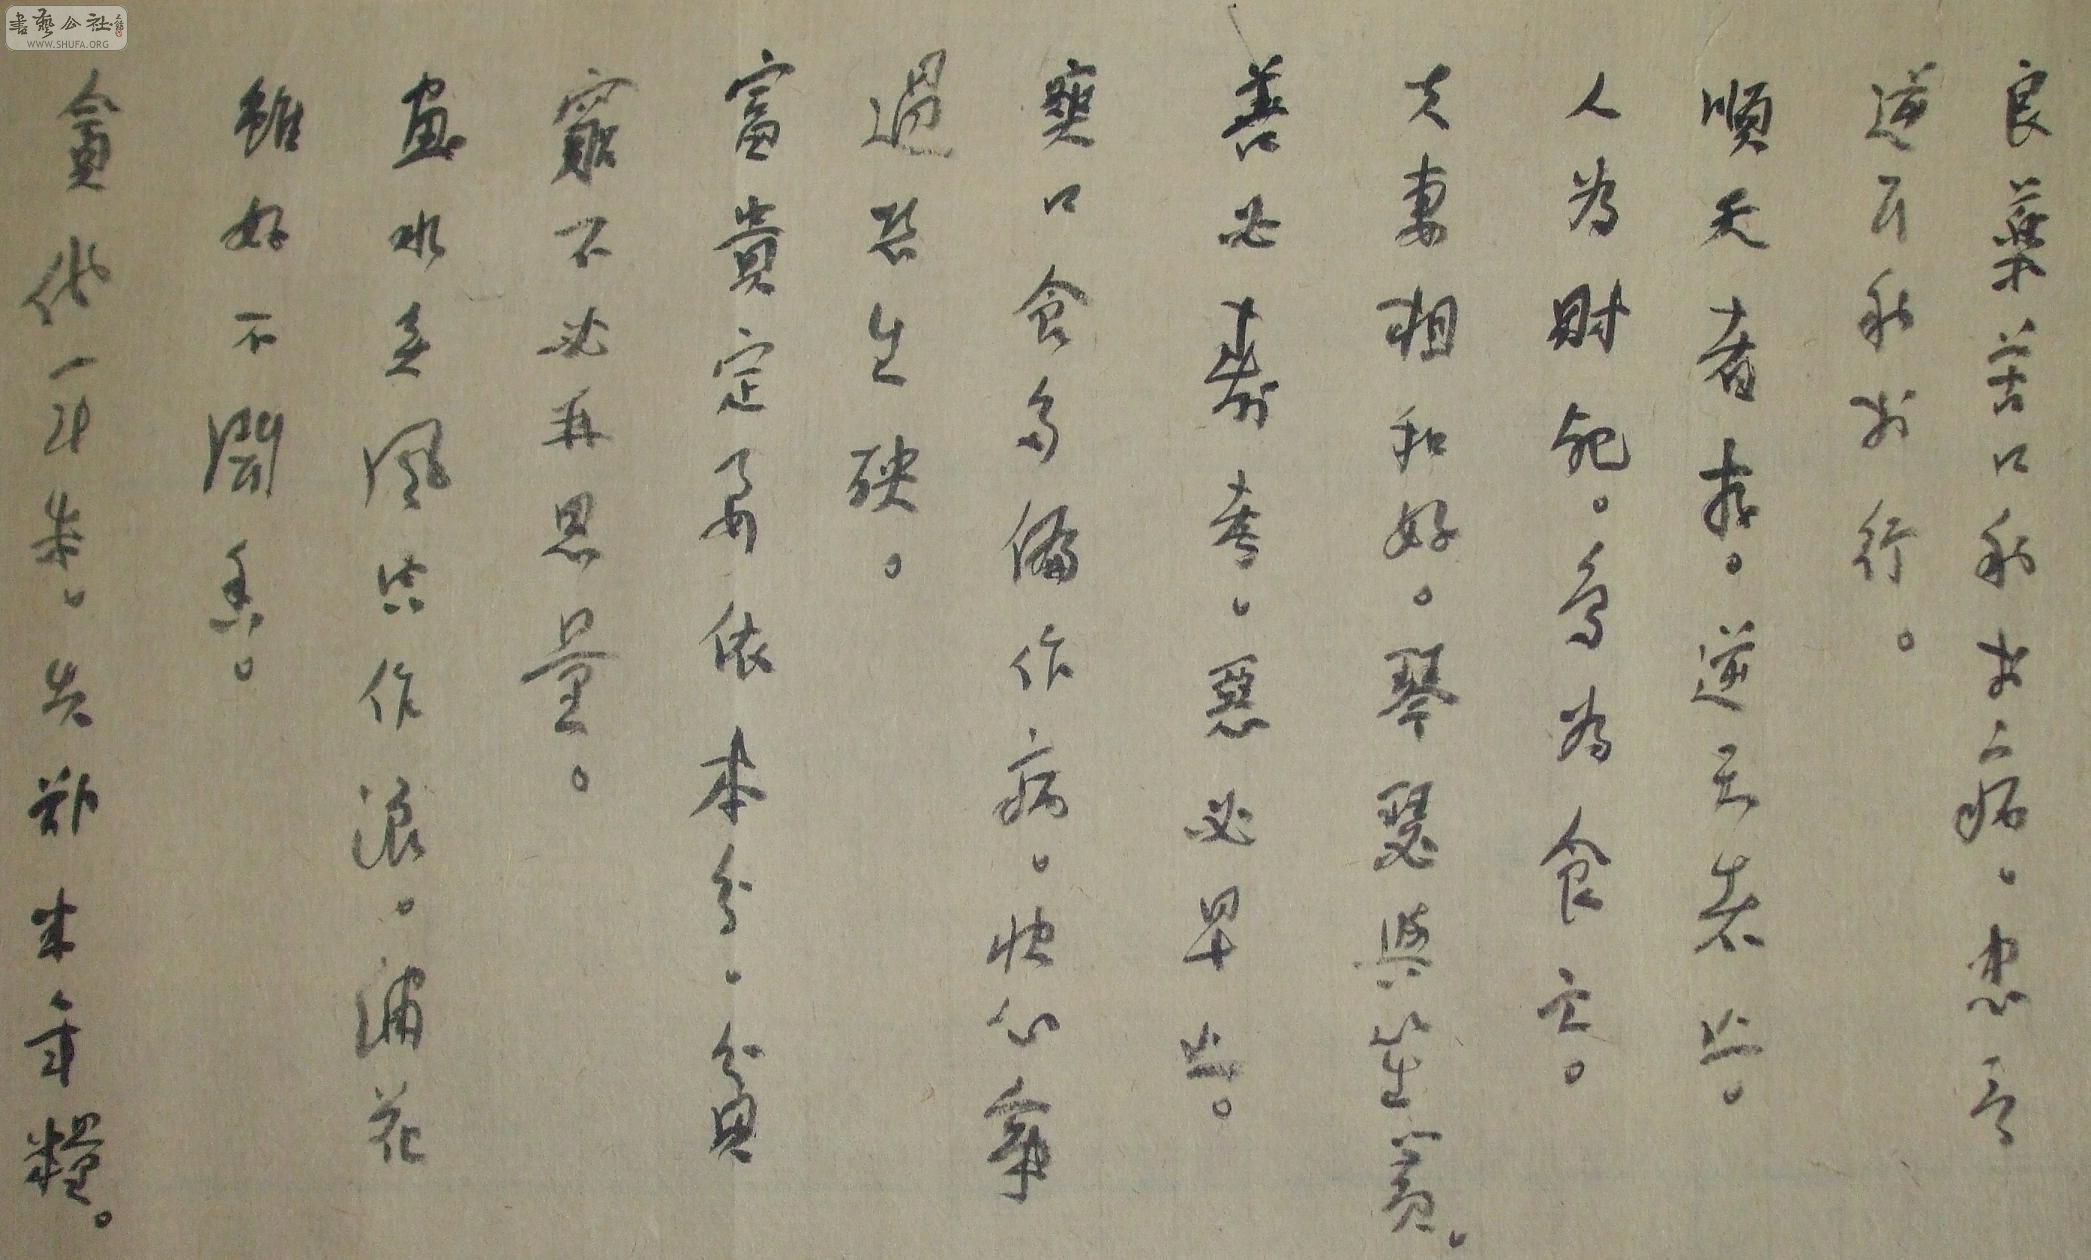 書藝公社
WWW.SHUFA.ORG
良藥苦口利於病。忠言
逆耳利於行。
順天者存。逆天者亡。
人為財死。鳥為食亡。
夫妻相和好。琴瑟與笙簧。
善必壽考。惡必早亡。
爽口食多偏作病。快心事
過恐生殃。
富貴定要依本分。貧
窮不必再思量。
畫水無風空作浪。繡花
雖好不聞香。
貪他一斗米。失卻半年糧。